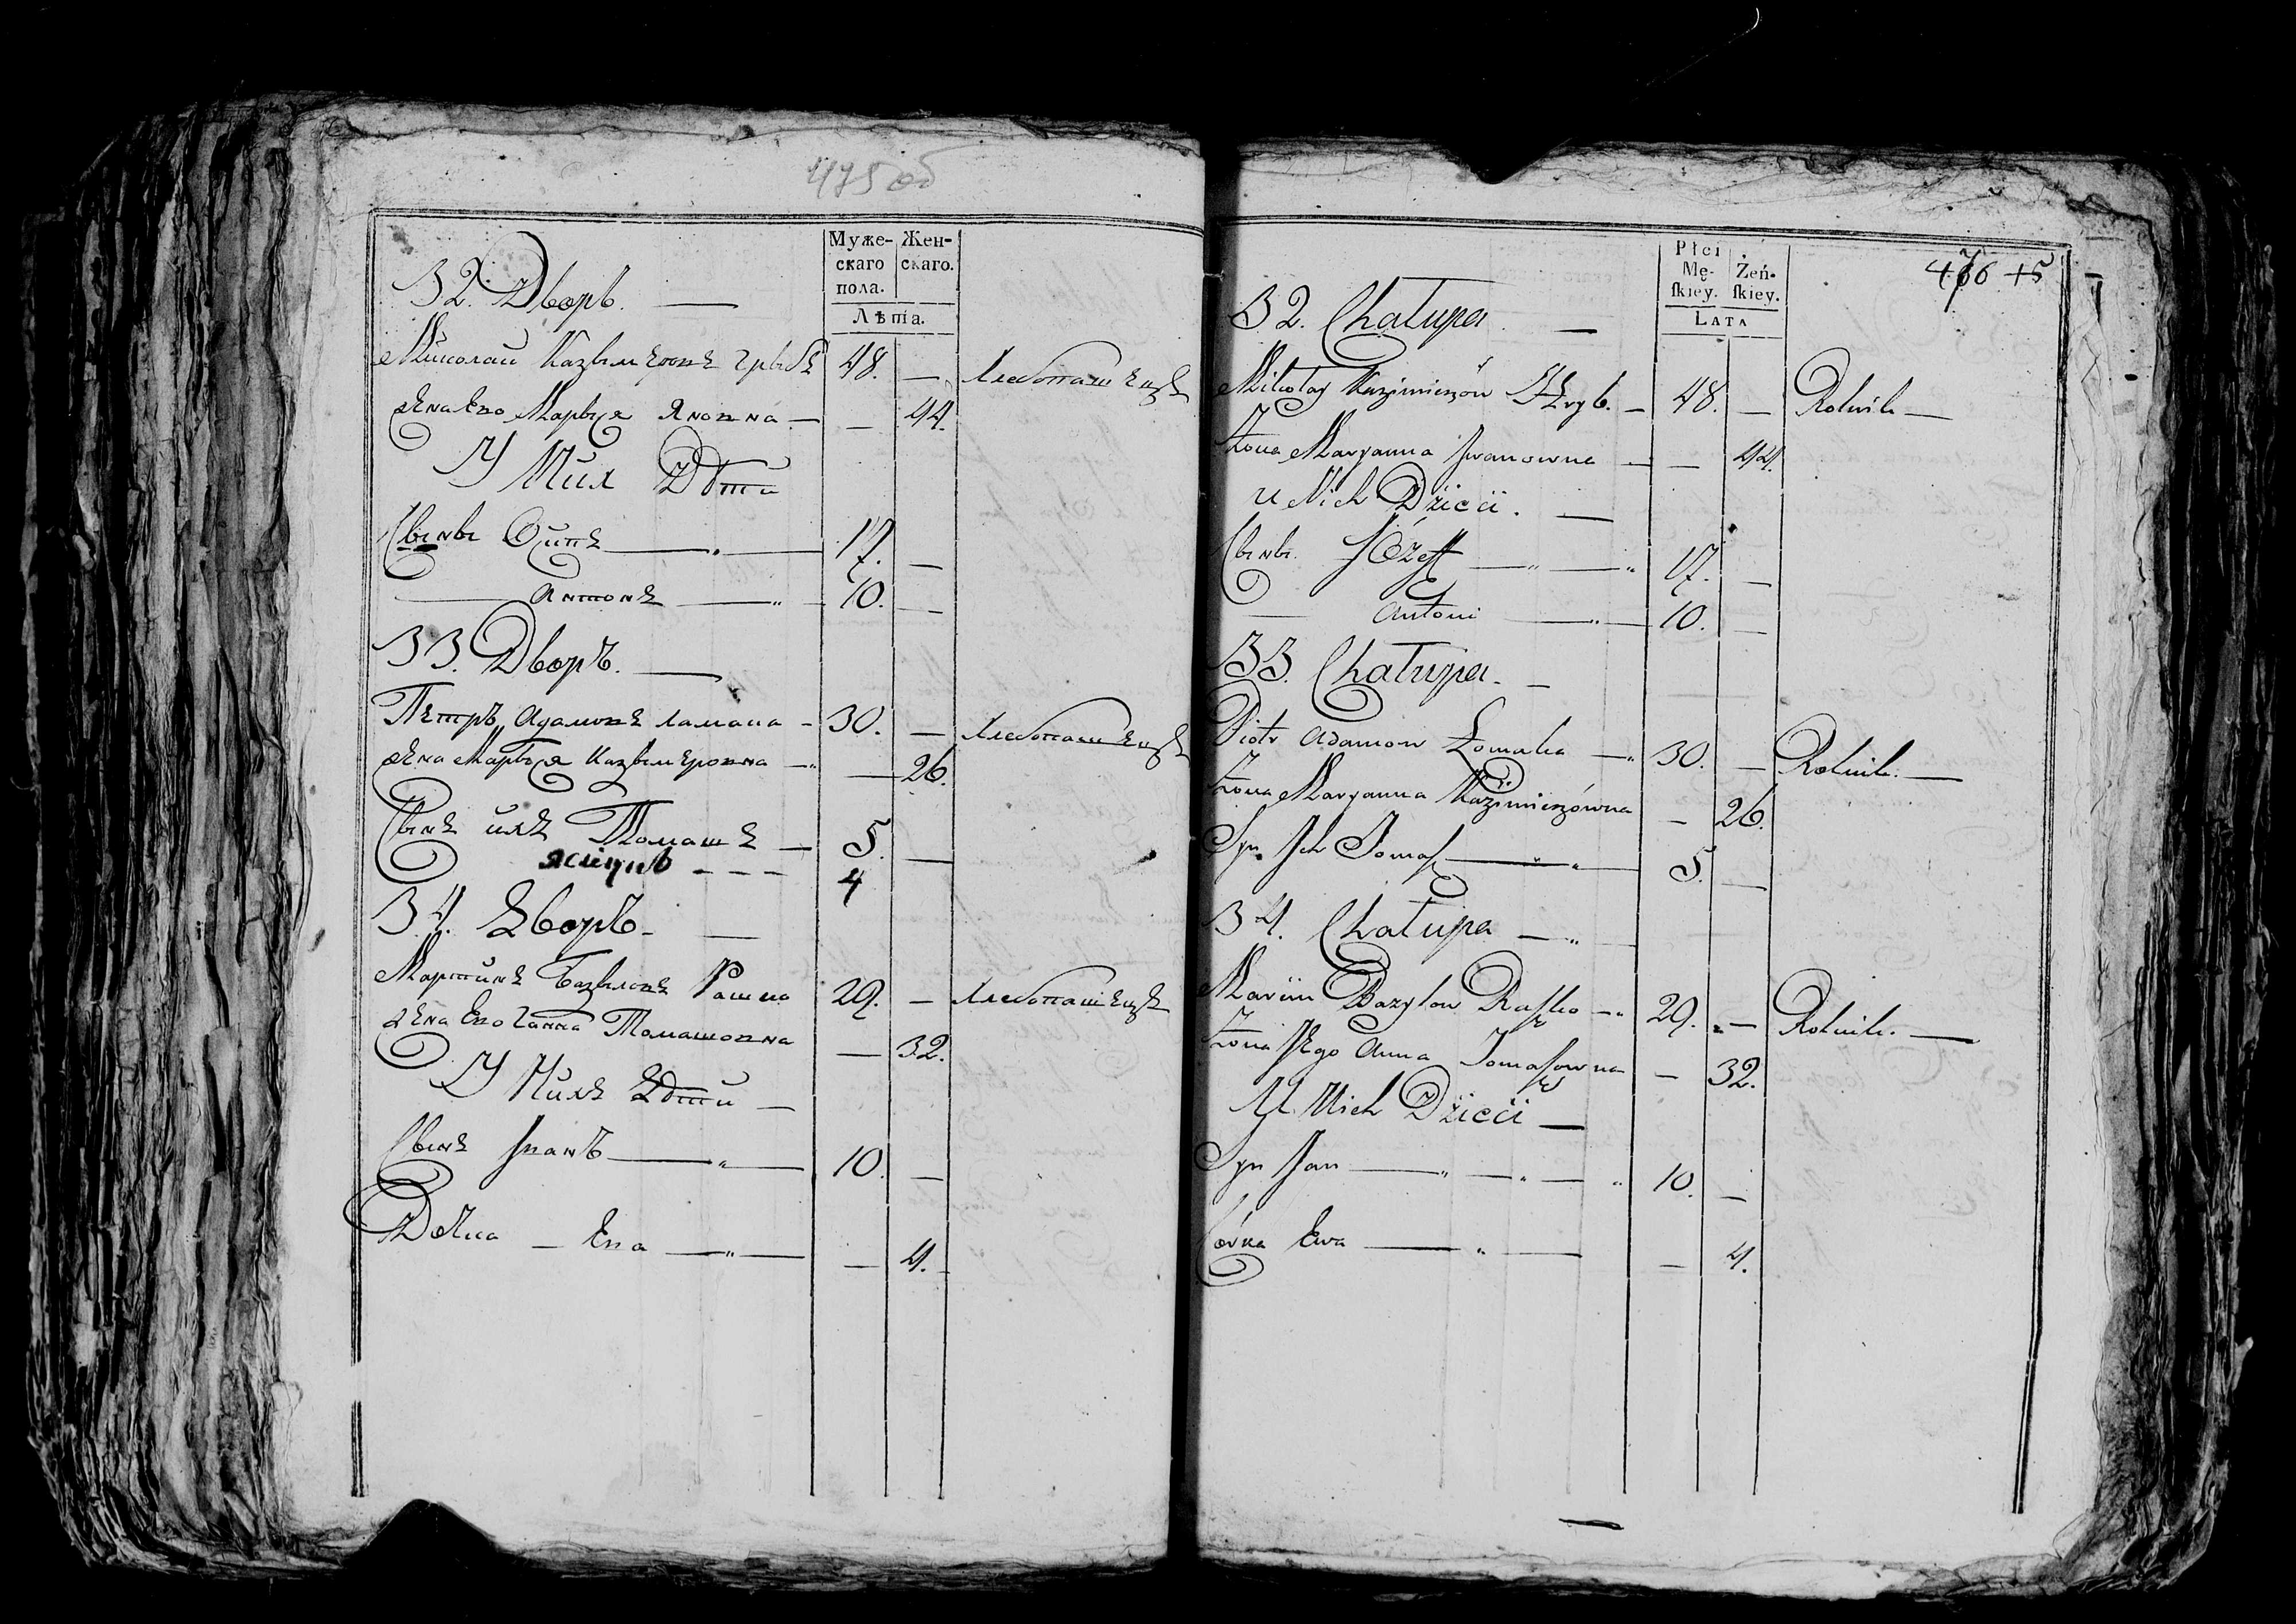 475 об
Муже-
скаго
пола.
Жен-
скаго.
Лѣта.
32. Дворъ. —
Миколай Казимеровъ Грыбъ 48. — Хлебопашецъ
Жена Его Марыя Яновна — — 44.
У Них Дѣти
Сыны Осипъ — 17. —
— Антонъ — 10. —
33. Дворъ. —
Петръ Адамовъ Ламака — 30. — Хлебопашецъ
Жена Марыя Казимеровна — — 26.
Сынъ ихъ Томашъ — 5. —
Якубъ - - - 4
34. Дворъ. —
Мартинъ Базылевъ Рашко 29. — Хлебопашецъ
Жена Его Ганна Томашовна — 32.
У Нихъ Дѣти —
Сынъ Иванъ — 10. —
Дочка — Ева — — 4. —
476 +5
Płci
Mę-
ſkiey.
Żeń-
ſkiey.
LATA
32. Chałupa. —
Mikołay Kazimierzów Hryb. — 48. — Rolnik —
Żona Maryanna Iwanowna — — 44.
u Nich Dzieci. —
Сыны. Józeff — 17. —
— Antoni — 10. —
33. Chałupa. —
Piotr Adamow Łomaka — 30. — Rolnik. —
Żona Maryanna Kazimierzówna — 26.
Syn Ich Tomaſz — 5. —
34. Chałupa —
Marcin Bazylow Raſzko — 29. — Rolnik. —
Żona Jego Anna Tomaſzowna — 32.
U Nich Dzieci —
Syn Jan — 10. —
Córka Ewa — — 4.